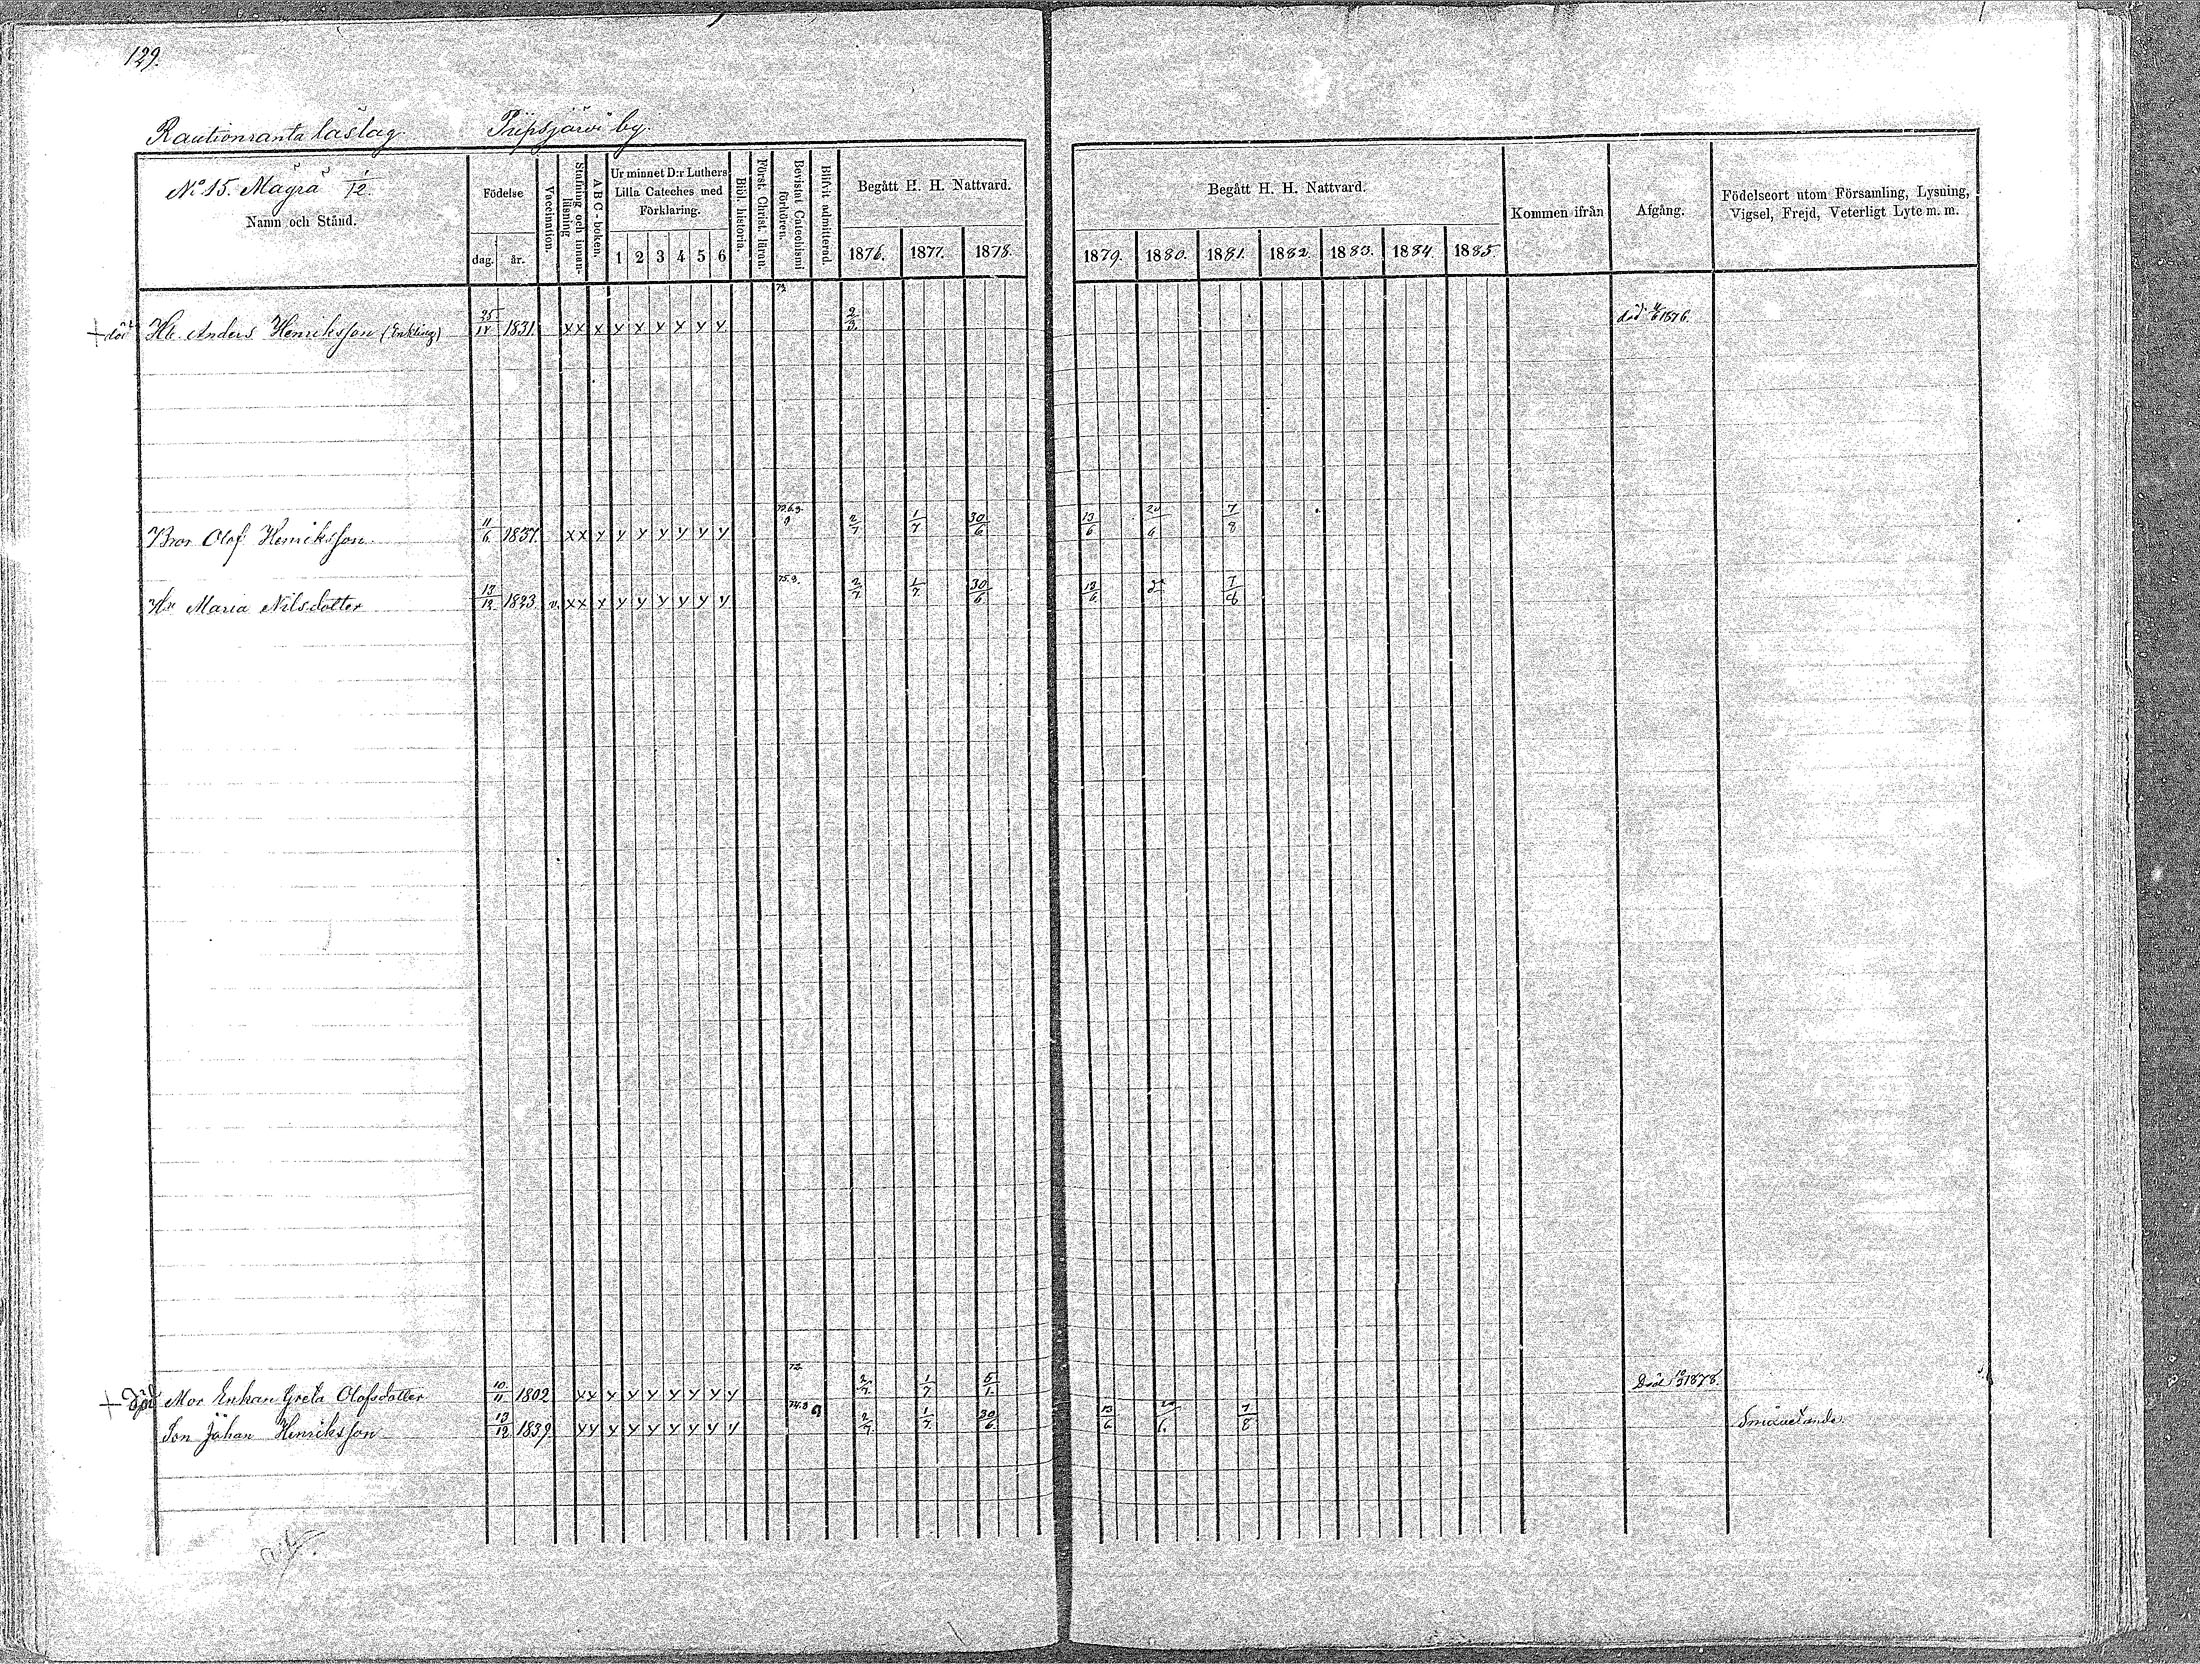 129.
Rautionranta läslag. Pupsjärvi by.
No 15. Mäyrä 1/12.
Namn och Stånd.
Födelse
dag. år.
Vaccination.
Stafning och innanläsning
A B C - boken.
Ur minnet D:r Luthers Lilla Cateches med Förklaring.
1 2 3 4 5 6
Bibl. historia.
Först. Christ. läran.
Bevistat Catechismi förhören.
Blifvit admitterad.
Begått H. H. Nattvard.
1876. 1877. 1878.
Begått H. H. Nattvard.
1879. 1880. 1881. 1882. 1883. 1884. 1885.
Kommen ifrån
Afgång.
Födelseort utom Församling, Lysning, Vigsel, Frejd, Veterligt Lyte m. m.
+ död Hb. Anders Henriksson (Enkling) 1831. x x x y y y y y y 2/3. död 1876.
Bror Olof Henriksson 11/6 1837. x x y y y y y y y 2/7 1/7 30/6 13/6 20/6 7/8
Hu Maria Nilsdotter 13/12 1823 v. x x y y y y y y y 75.9. 2/7 1/7 30/6 13/6 7/8
+ Död Mor Enkan Greta Olofsdotter 10/11 1802 x x y y y y y y y 72. 2/7. 1/7 5/1. Död 1878.
Son Johan Henriksson 13/12 1839. y y y y y y y y y 2/7. 1/7. 30/6. 13/6 20/6. 7/8